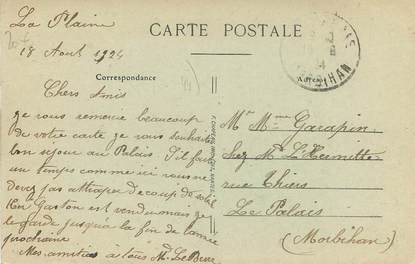 La Plaine
18 Aout 1924
CARTE POSTALE
Correspondance
Adresse
MORBIHAN
Chers Amis
je vous remercie beaucoup
de votre carte je vous souhaite
bon sejour au Palais s'il fait
un temps comme ici vous ne
devez pas attraper de coup de soleil
Gaston est vendu mais je
le garde jusqu'à la fin de l'année
prochaine
Mes amitiés à tous
Mr Mme Garapin
chez Mr L'Hermitte
rue Thiers
Le Palais
(Morbihan)